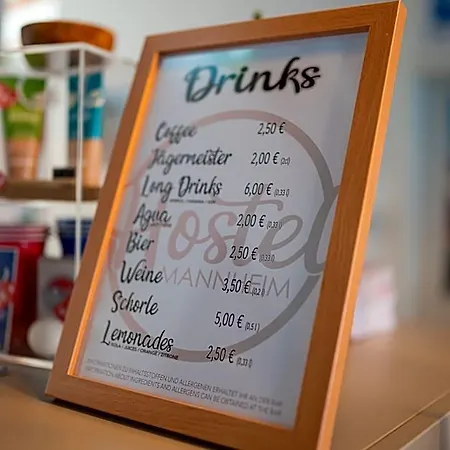 Drinks
Coffee 2,50 €
Jägermeister 2,00 € (2cl)
Long Drinks 6,00 € (0,33 l)
Agua 2,00 € (0,33 l)
Bier 2,50 € (0,33 l)
Weine 3,50 € (0,2 l)
Schorle 5,00 € (0,5 l)
Lemonades 2,50 € (0,33 l)
KOLA / JUICES / ORANGE / ZITRONE
Hostel
MANNHEIM
INFORMATIONEN ZU INHALTSSTOFFEN UND ALLERGENEN ERHALTET IHR AN DER BAR
INFORMATION ABOUT INGREDIENTS AND ALLERGENS CAN BE OBTAINED AT THE BAR